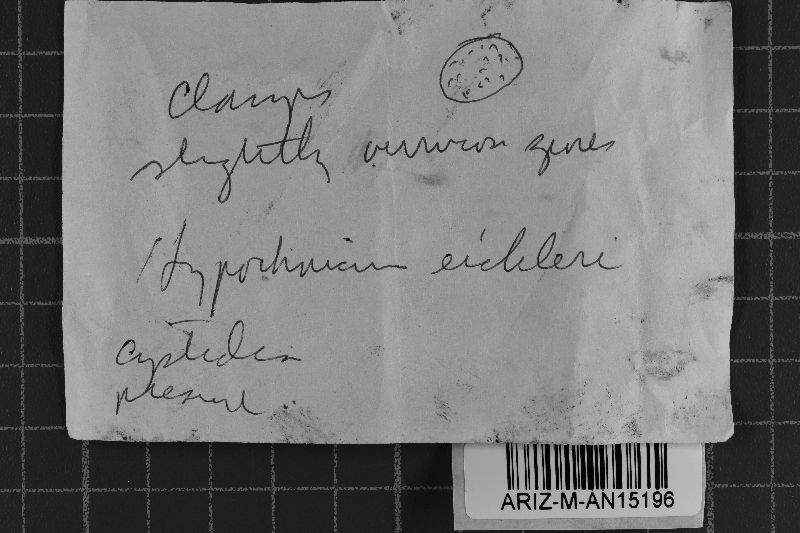 Clamps
slightly verrucose spores
Hypochnicium eichleri
Cystidia
present
ARIZ-M-AN15196